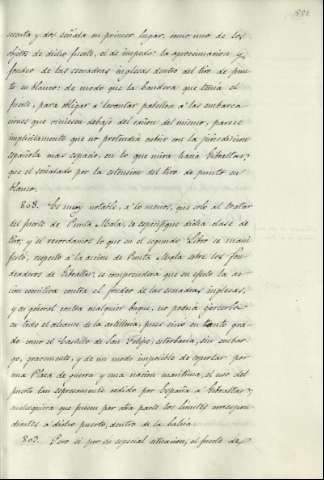 senta y dos señala en primer lugar, como uno de los
objetos de dicho fuerte, el de impedir la aproximacion y
fondeo de las escuadras inglesas dentro del tiro de pun-
to en blanco: de modo que la bandera que tenia el
fuerte, para obligar á levantar pabellon á las embarca-
ciones que viniesen debajo del cañon del mismo, parece
implícitamente que no pretendia cubrir con la jurisdiccion
española mas espacio, en lo que mira hacia Gibraltar,
que el señalado por la estension del tiro de punto en
blanco.
808. Es muy notable, á lo menos, que solo al tratar
del fuerte de Punta Mala, se especifique dicha clase de
tiro; y si recordamos lo que en el segundo Libro se mani-
festó, respecto á la accion de Punta Mala sobre los fon-
deaderos de Gibraltar, se comprenderia que en efecto la ac-
cion coercitiva contra el fondeo de las escuadras inglesas,
y en general contra cualquier buque, no podria ejercerla
en todo el alcance de la artilleria, pues sino en tanto gra-
do como el Castillo de San Felipe, estorbaria, sin embar-
go, gravemente, y de un modo imposible de soportar por
una Plaza de guerra y una nacion maritima, el uso del
puerto tan espresamente cedido por España á Gibraltar,
cualesquiera que fuesen por otra parte los limites correspon-
dientes á dicho puerto, dentro de la bahia.
809. Pero si por su especial situacion, el fuerte de